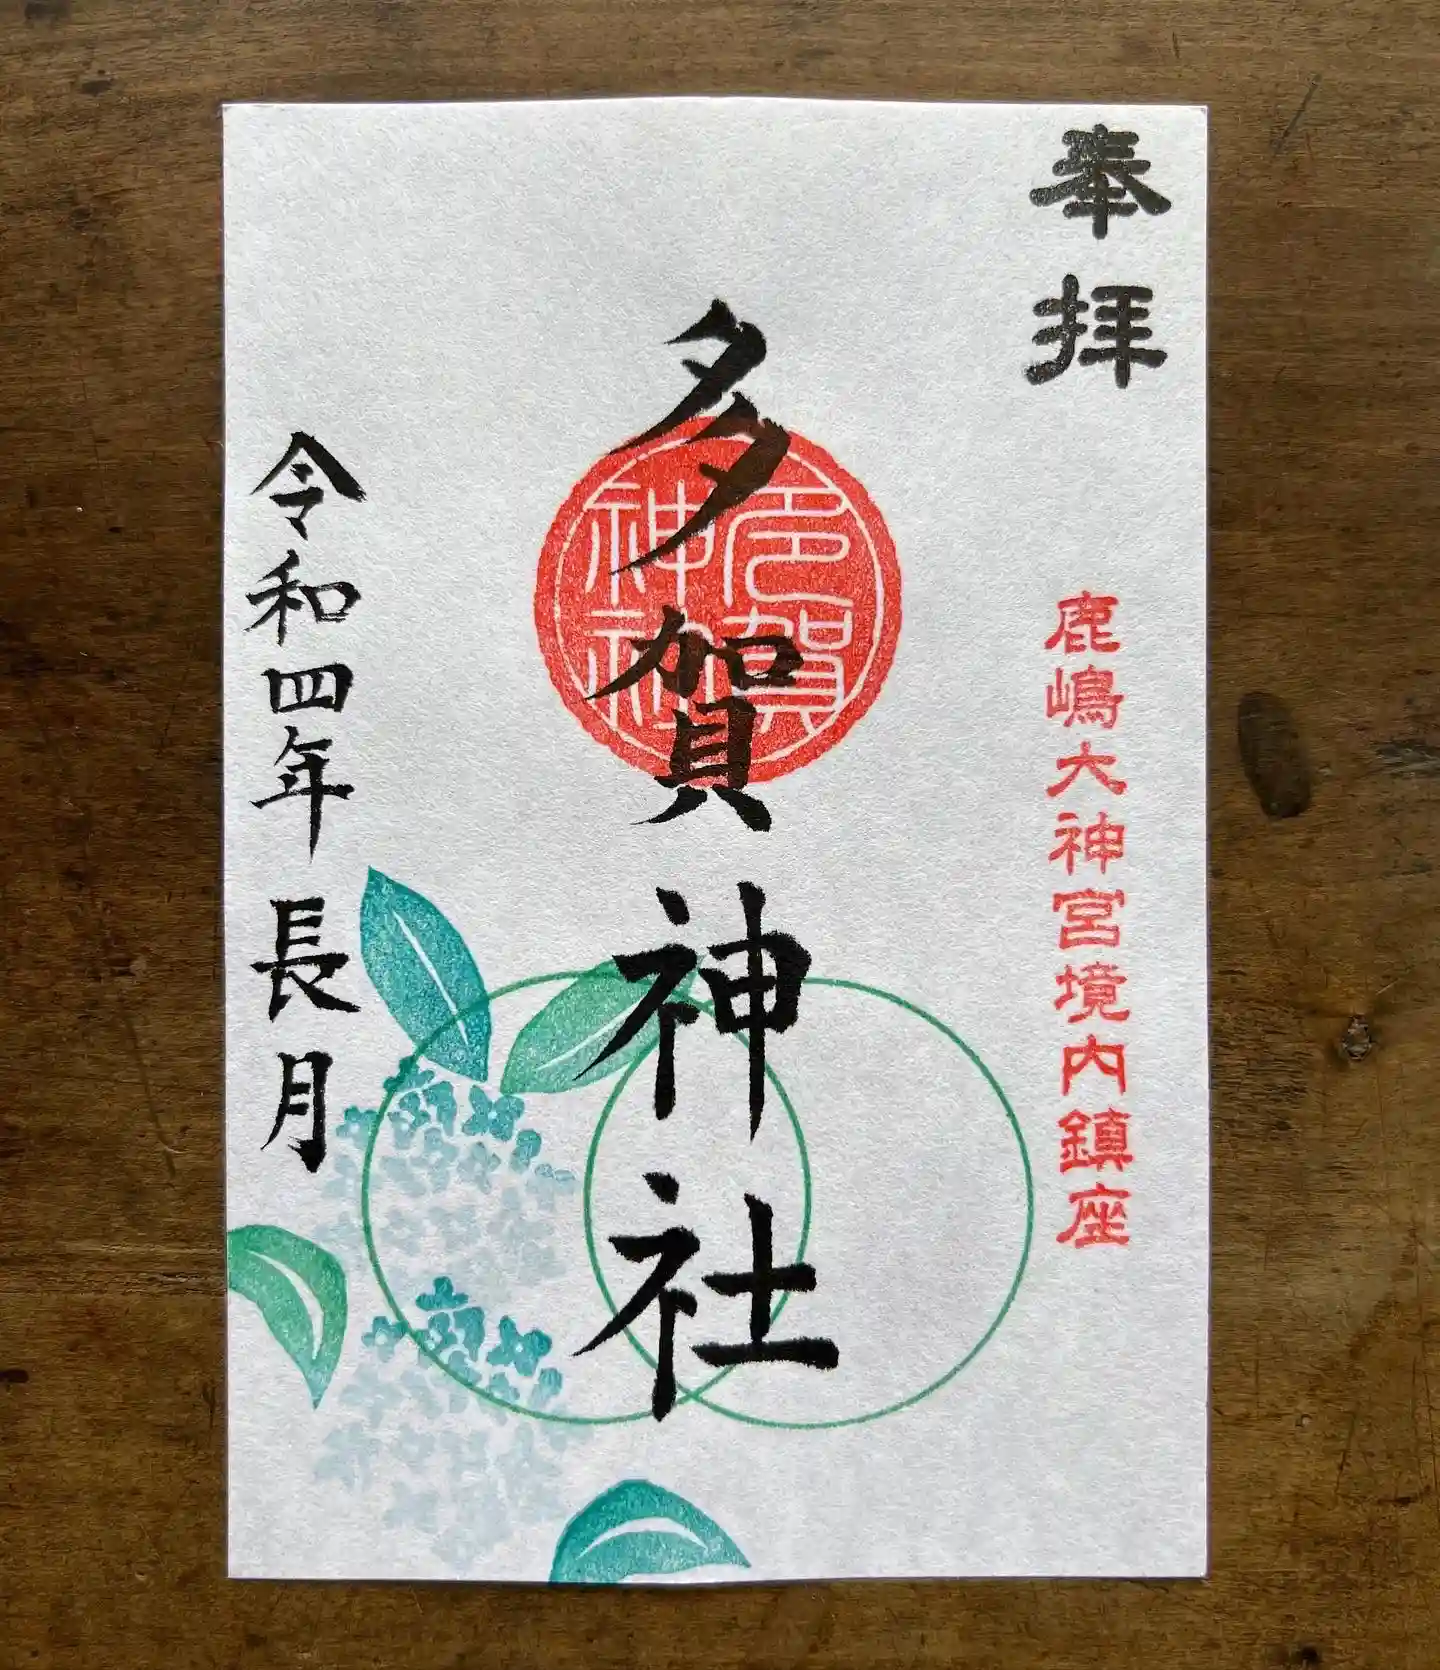 奉拝
鹿嶋大神宮境内鎮座
多賀神社
多賀
神社
令和四年 長月